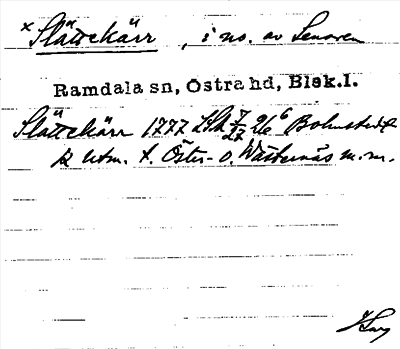 × Slättekärr, i no. av Senoren
Ramdala sn, Östra hd, Blek. l.
Slättekärr 1777 LSA 7/27 26⁶ Bohustedt
k utm. t. Öster- o. Västernäs m.m.